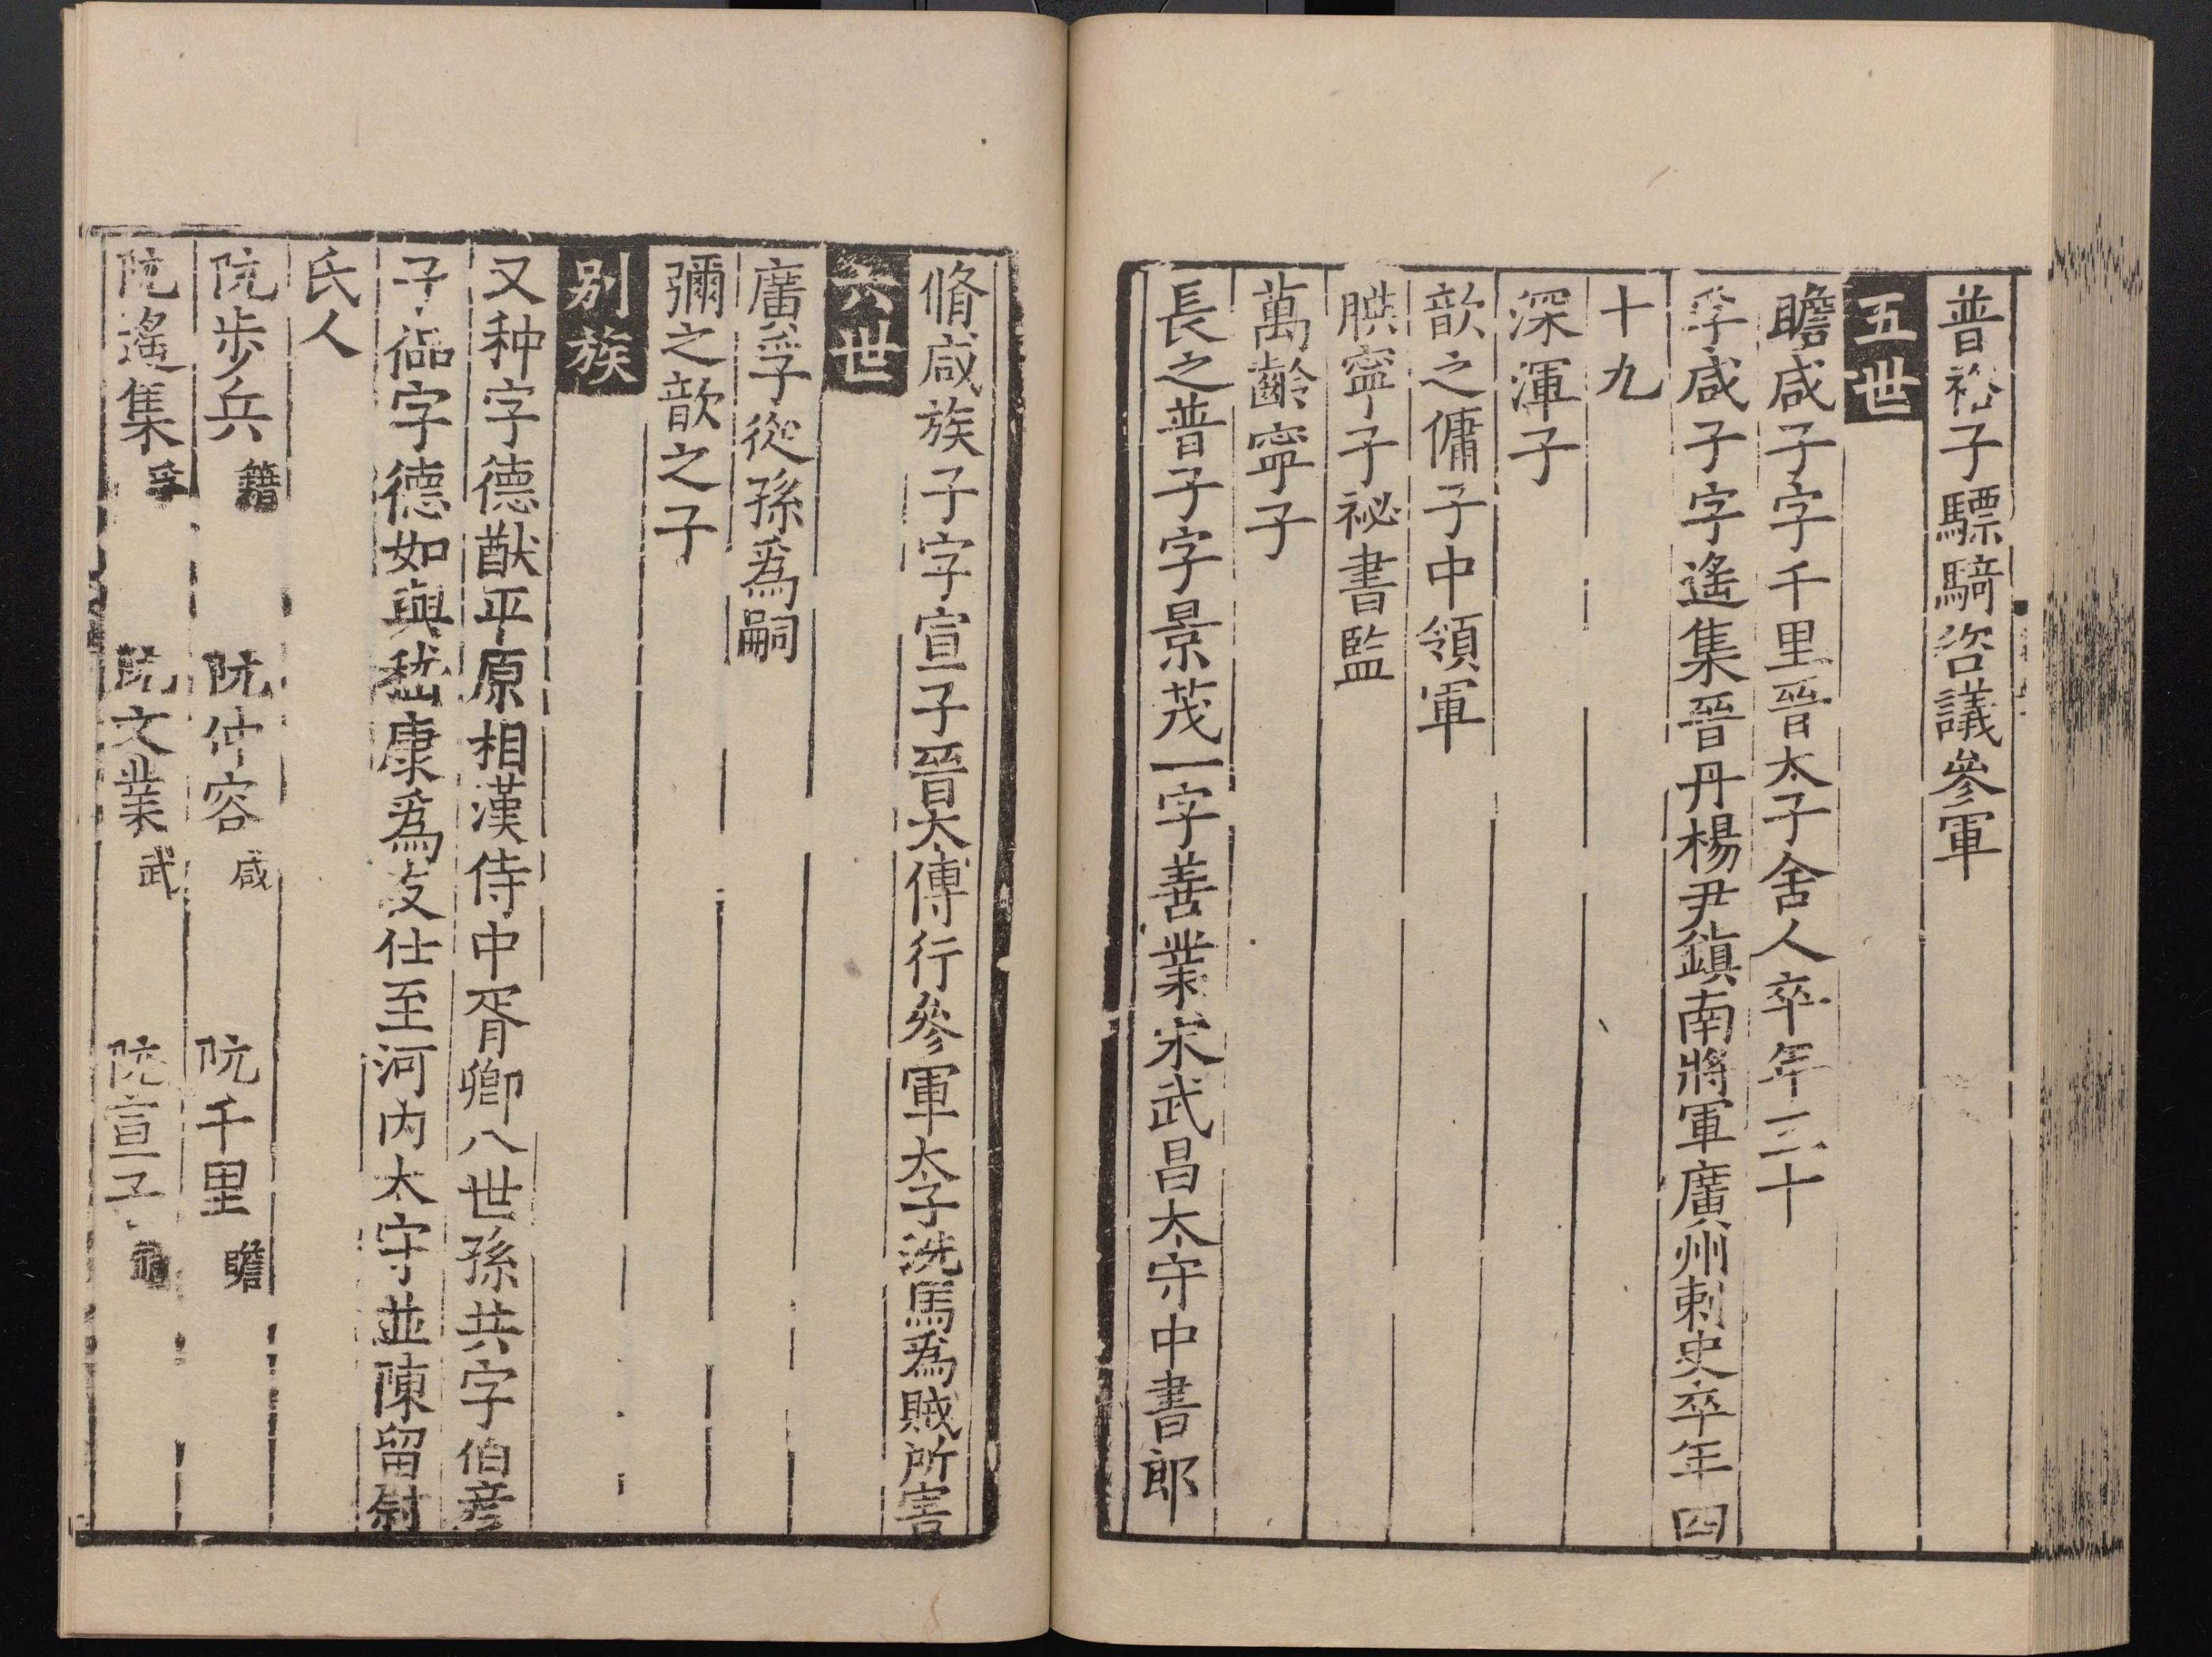 普裕子驃騎咨議參軍
五世
瞻咸子字千里晉太子舍人卒年三十
孚咸子字遙集晉丹楊尹鎮南將軍廣州刺史卒年四
十九
深渾子
歆之傭子中領軍
腆寧子祕書監
萬齡寧子
長之普子字景茂一字善業宋武昌太守中書郎
脩咸族子字宣子晉太傅行參軍太子洗馬爲賊所害
六世
廣孚從孫爲嗣
彌之歆之子
別族
又种字德猷平原相漢侍中胥卿八世孫共字伯彥
子侃字德如與嵇康爲友仕至河內太守並陳留尉
氏人
阮步兵 籍 阮仲容 咸 阮千里 瞻
阮遙集 孚 阮文業 武 阮宣子